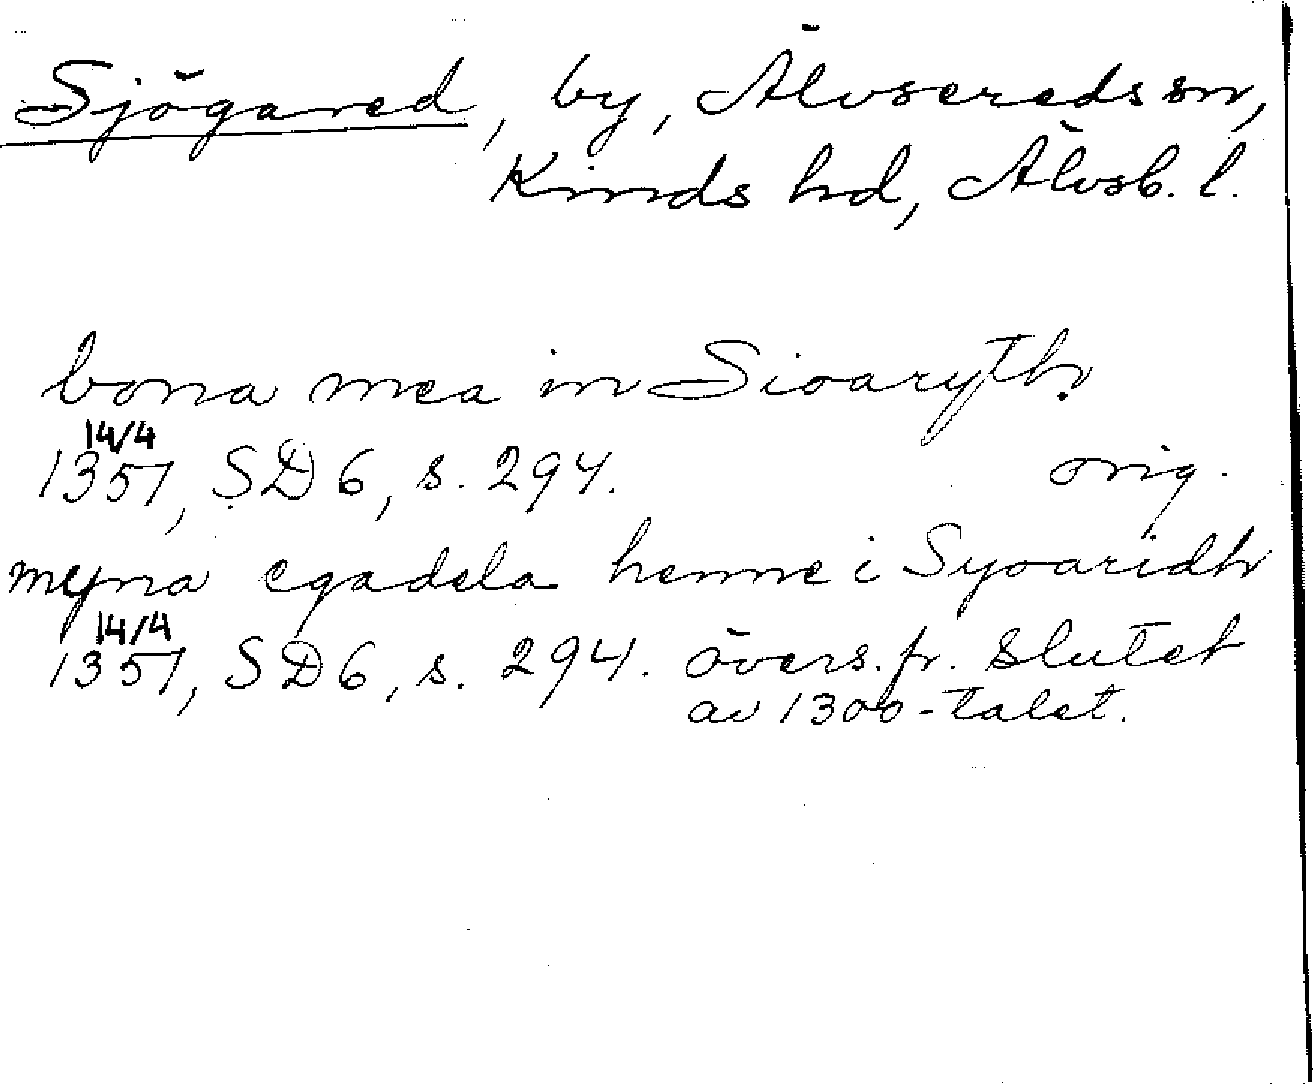 Sjögared, by, Älvsereds sn,
Kinds hd, Älvsb. l.
bona mea in Sioaryth.
14/4
1357, SD 6, s. 294. orig.
myna egadela henne i Syoaridh
14/4
1357, SD 6, s. 294. övers. fr. slutet
av 1300-talet.